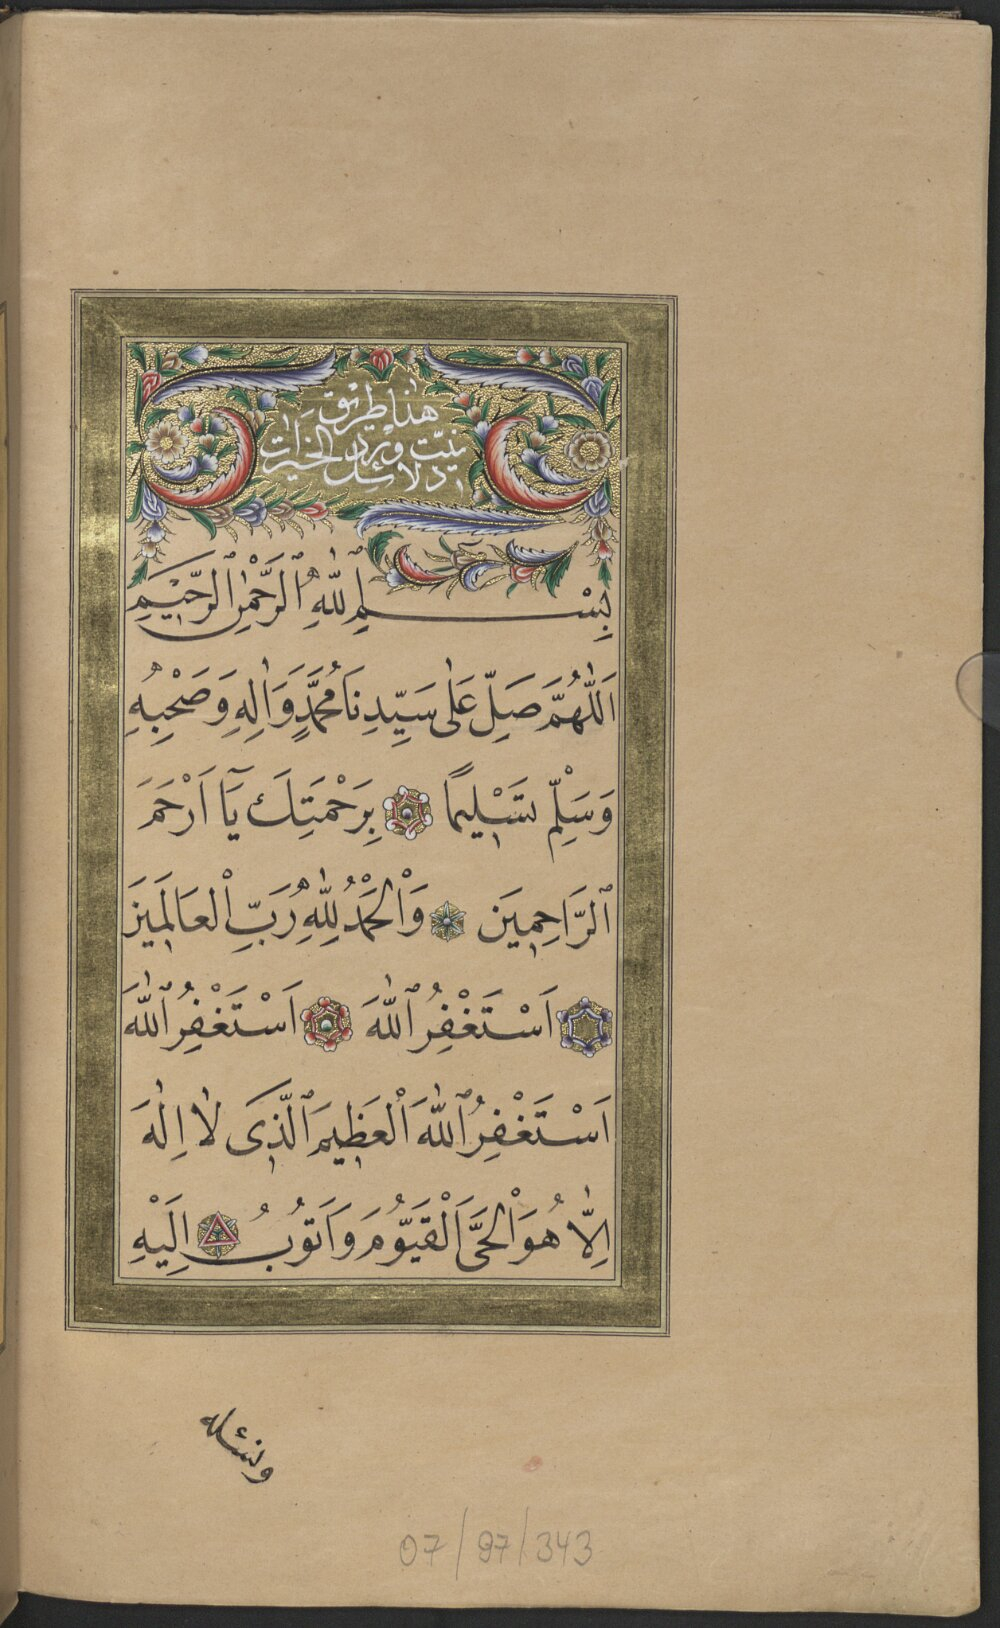 هذا طريق
نيت ورد
دلائل الخيرات
بِسْمِ اللّٰهِ الرَّحْمٰنِ الرَّحِيمِ
اَللّٰهُمَّ صَلِّ عَلٰى سَيِّدِنَا مُحَمَّدٍ وَاٰلِهِ وَصَحْبِهِ
وَسَلِّمْ تَسْلِيمًا بِرَحْمَتِكَ يَٓا اَرْحَمَ
الرَّاحِمِينَ وَالْحَمْدُ لِلّٰهِ رَبِّ الْعَالَمِينَ
اَسْتَغْفِرُ اللّٰهَ اَسْتَغْفِرُ اللّٰهَ
اَسْتَغْفِرُ اللّٰهَ الْعَظِيمَ الَّذِى لَا اِلٰهَ
اِلَّا هُوَ الْحَىَّ الْقَيُّومَ وَاَتُوبُ اِلَيْهِ
ونسئله
07/97/343